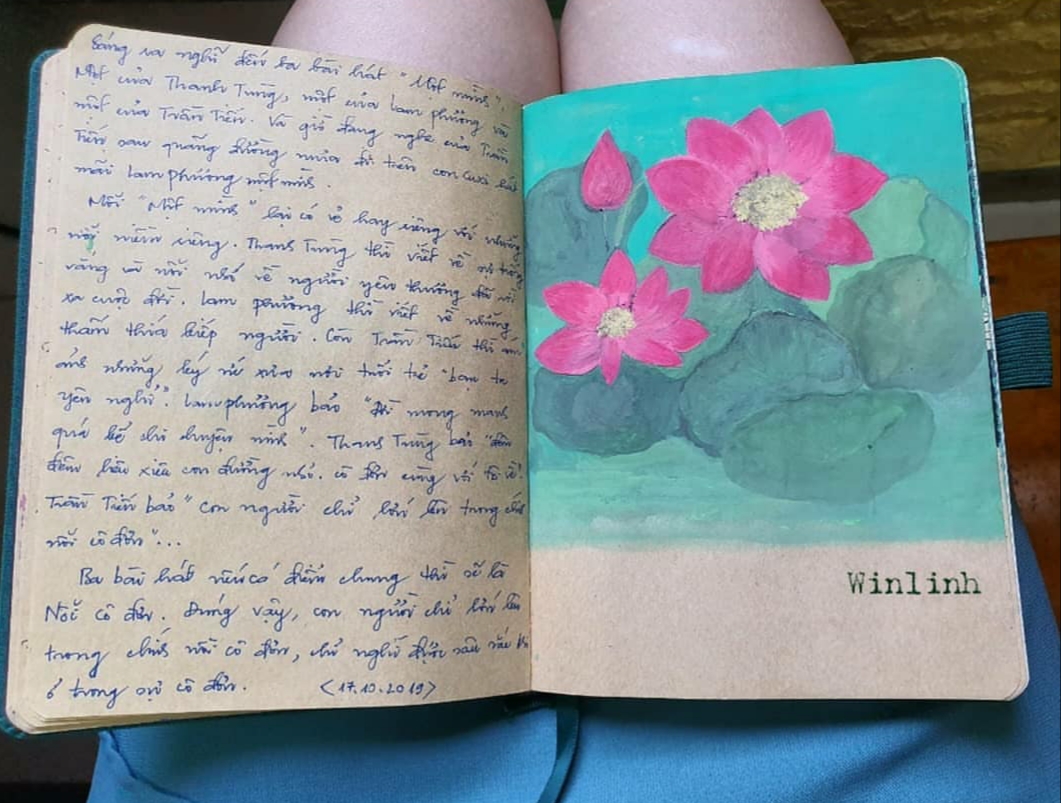 Sáng ra nghĩ đến ba bài hát "Một mình".
Một của Thanh Tùng, một của Lam Phương và
một của Trần Tiến. Và giờ đang nghe của Trần
Tiến sau quãng đường nửa đi trên con
mãi Lam Phương một mình.
Mỗi "Một mình" lại có vẻ hay riêng với những
nỗi niềm riêng. Thanh Tùng thì viết về sự trống
vắng và nỗi nhớ về người yêu thương đã rời
xa cuộc đời. Lam Phương thì viết về những
thấm thía kiếp người. Còn Trần Tiến thì ám
ảnh những ký ức xưa nơi tuổi trẻ "bạn ta
yên nghỉ". Lam Phương bảo "Đời mong manh
quá kể chi chuyện mình". Thanh Tùng bảo "đêm
đêm liêu xiêu con đường nhỏ. cô đơn cùng với tôi về.
Trần Tiến bảo "con người chỉ lớn lên trong chính
nỗi cô đơn"...
Ba bài hát nếu có điểm chung thì sẽ là
Nỗi cô đơn. Đúng vậy, con người chỉ lớn lên
trong chính nỗi cô đơn, chỉ nghĩ được sâu sắc khi
ở trong sự cô đơn. <17.10.2019>
Winlinh